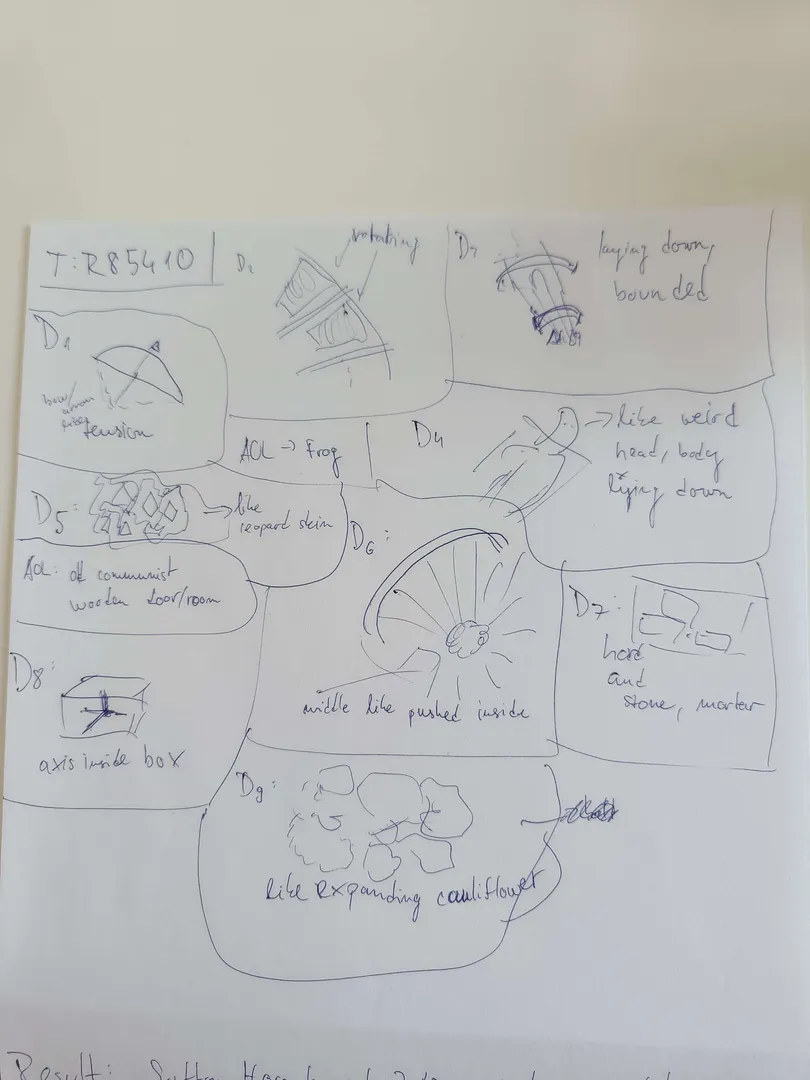 T:R85410
D2
rotabing
D3
laying down,
bounded
D1
bow/
tension
AOL → Frog
D4
→ like weird
head, body
lying down
D5:
→ like
leopard skin
AOL: communist
wooden door/room
D6:
middle like pushed inside
D7:
hard
and
stone, mortar
D8:
axis inside box
D9:
like expanding cauliflower
Result: